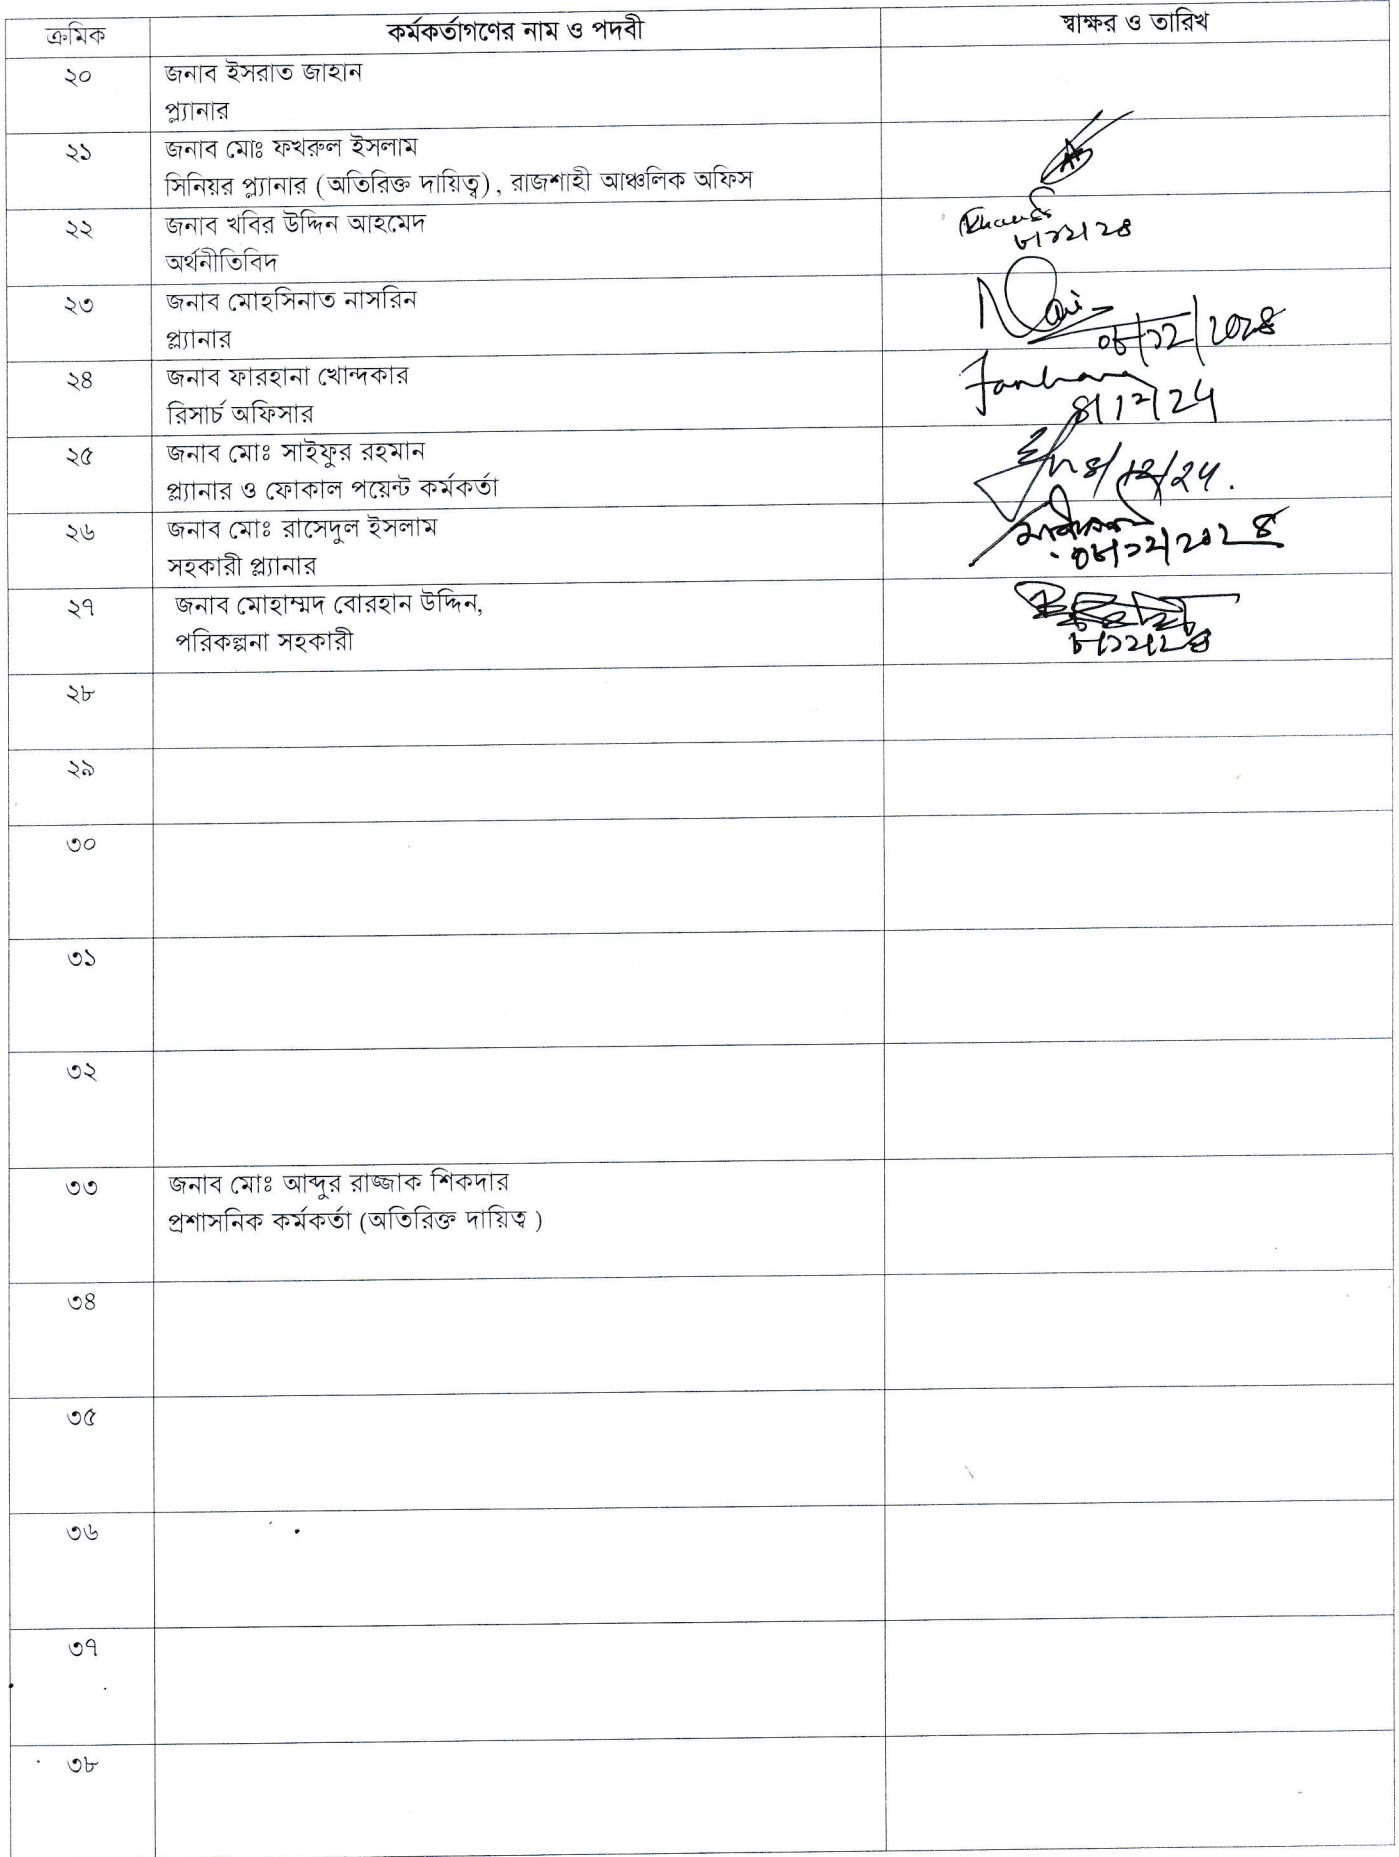 ক্রমিক কর্মকর্তাগণের নাম ও পদবী স্বাক্ষর ও তারিখ
২০ জনাব ইসরাত জাহান
প্ল্যানার
২১ জনাব মোঃ ফখরুল ইসলাম
সিনিয়র প্ল্যানার (অতিরিক্ত দায়িত্ব), রাজশাহী আঞ্চলিক অফিস
২২ জনাব খবির উদ্দিন আহমেদ
অর্থনীতিবিদ ৮/১২/২৪
২৩ জনাব মোহসিনাত নাসরিন
প্ল্যানার ০৮/১২/২০২৪
২৪ জনাব ফারহানা খোন্দকার Farhana
রিসার্চ অফিসার 8/12/24
২৫ জনাব মোঃ সাইফুর রহমান
প্ল্যানার ও ফোকাল পয়েন্ট কর্মকর্তা 8/12/24.
২৬ জনাব মোঃ রাসেদুল ইসলাম
সহকারী প্ল্যানার ০৮/১২/২০২৪
২৭ জনাব মোহাম্মদ বোরহান উদ্দিন,
পরিকল্পনা সহকারী ৮/১২/২৪
২৮
২৯
৩০
৩১
৩২
৩৩ জনাব মোঃ আব্দুর রাজ্জাক শিকদার
প্রশাসনিক কর্মকর্তা (অতিরিক্ত দায়িত্ব )
৩৪
৩৫
৩৬
৩৭
৩৮